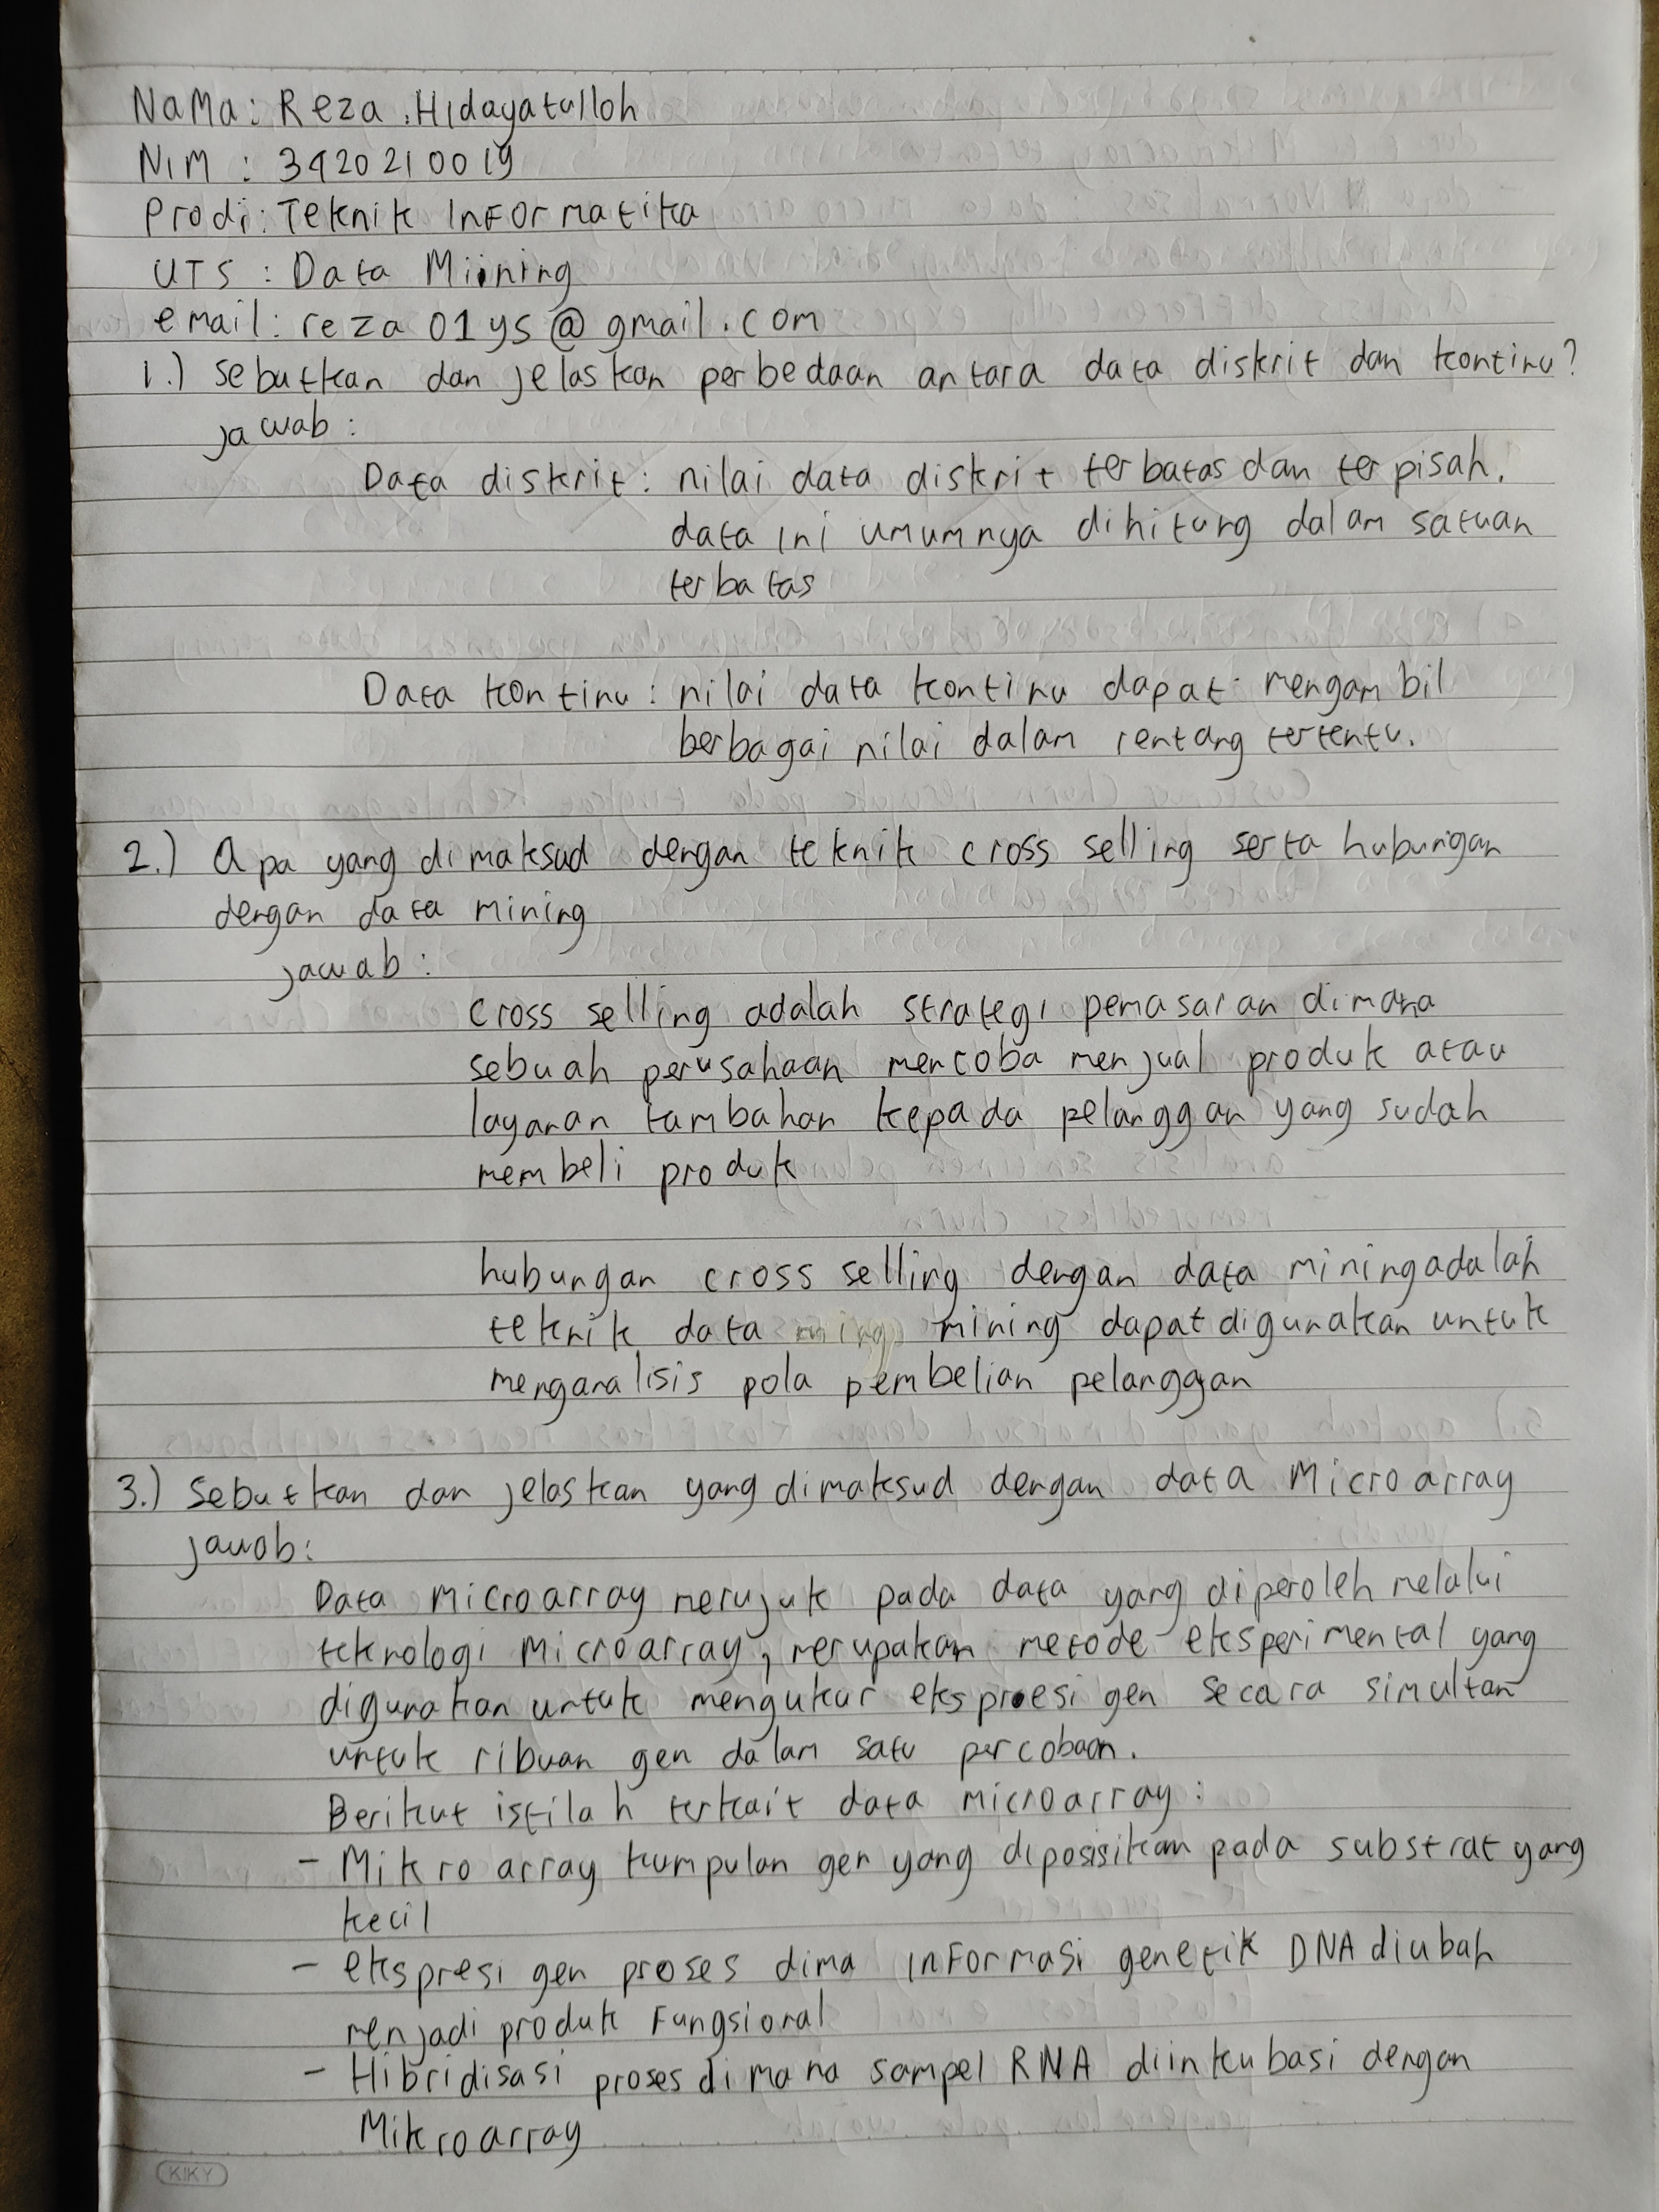 Nama: Reza Hidayatulloh
NIM : 3420210019
Prodi: Teknik Informatika
UTS : Data Miining
email: reza01ys@gmail.com
1.) sebutkan dan jelaskan perbedaan antara data diskrit dan kontinu?
jawab :
Data diskrit: nilai data diskrit terbatas dan terpisah.
data ini umumnya dihitung dalam satuan
terbatas
Data kontinu: nilai data kontinu dapat mengambil
berbagai nilai dalam rentang tertentu.
2.) Apa yang dimaksud dengan teknik cross selling serta hubungan
dengan data mining
jawab :
cross selling adalah strategi pemasaran dimana
sebuah perusahaan mencoba menjual produk atau
layanan tambahan kepada pelanggan yang sudah
membeli produk
hubungan cross selling dengan data mining adalah
teknik data mining dapat digunakan untuk
menganalisis pola pembelian pelanggan
3.) Sebutkan dan jelaskan yang dimaksud dengan data Microarray
jawab:
Data Microarray merujuk pada data yang diperoleh melalui
teknologi Microarray, merupakan metode eksperimental yang
digunakan untuk mengukur ekspresi gen secara simultan
untuk ribuan gen dalam satu percobaan.
Berikut istilah terkait data microarray :
- Mikroarray kumpulan gen yang diposisikan pada substrat yang
kecil
- ekspresi gen proses dima informasi genetik DNA diubah
menjadi produk Fungsional
- Hibridisasi proses dimana sampel RNA diinkubasi dengan
Mikroarray
KIKY